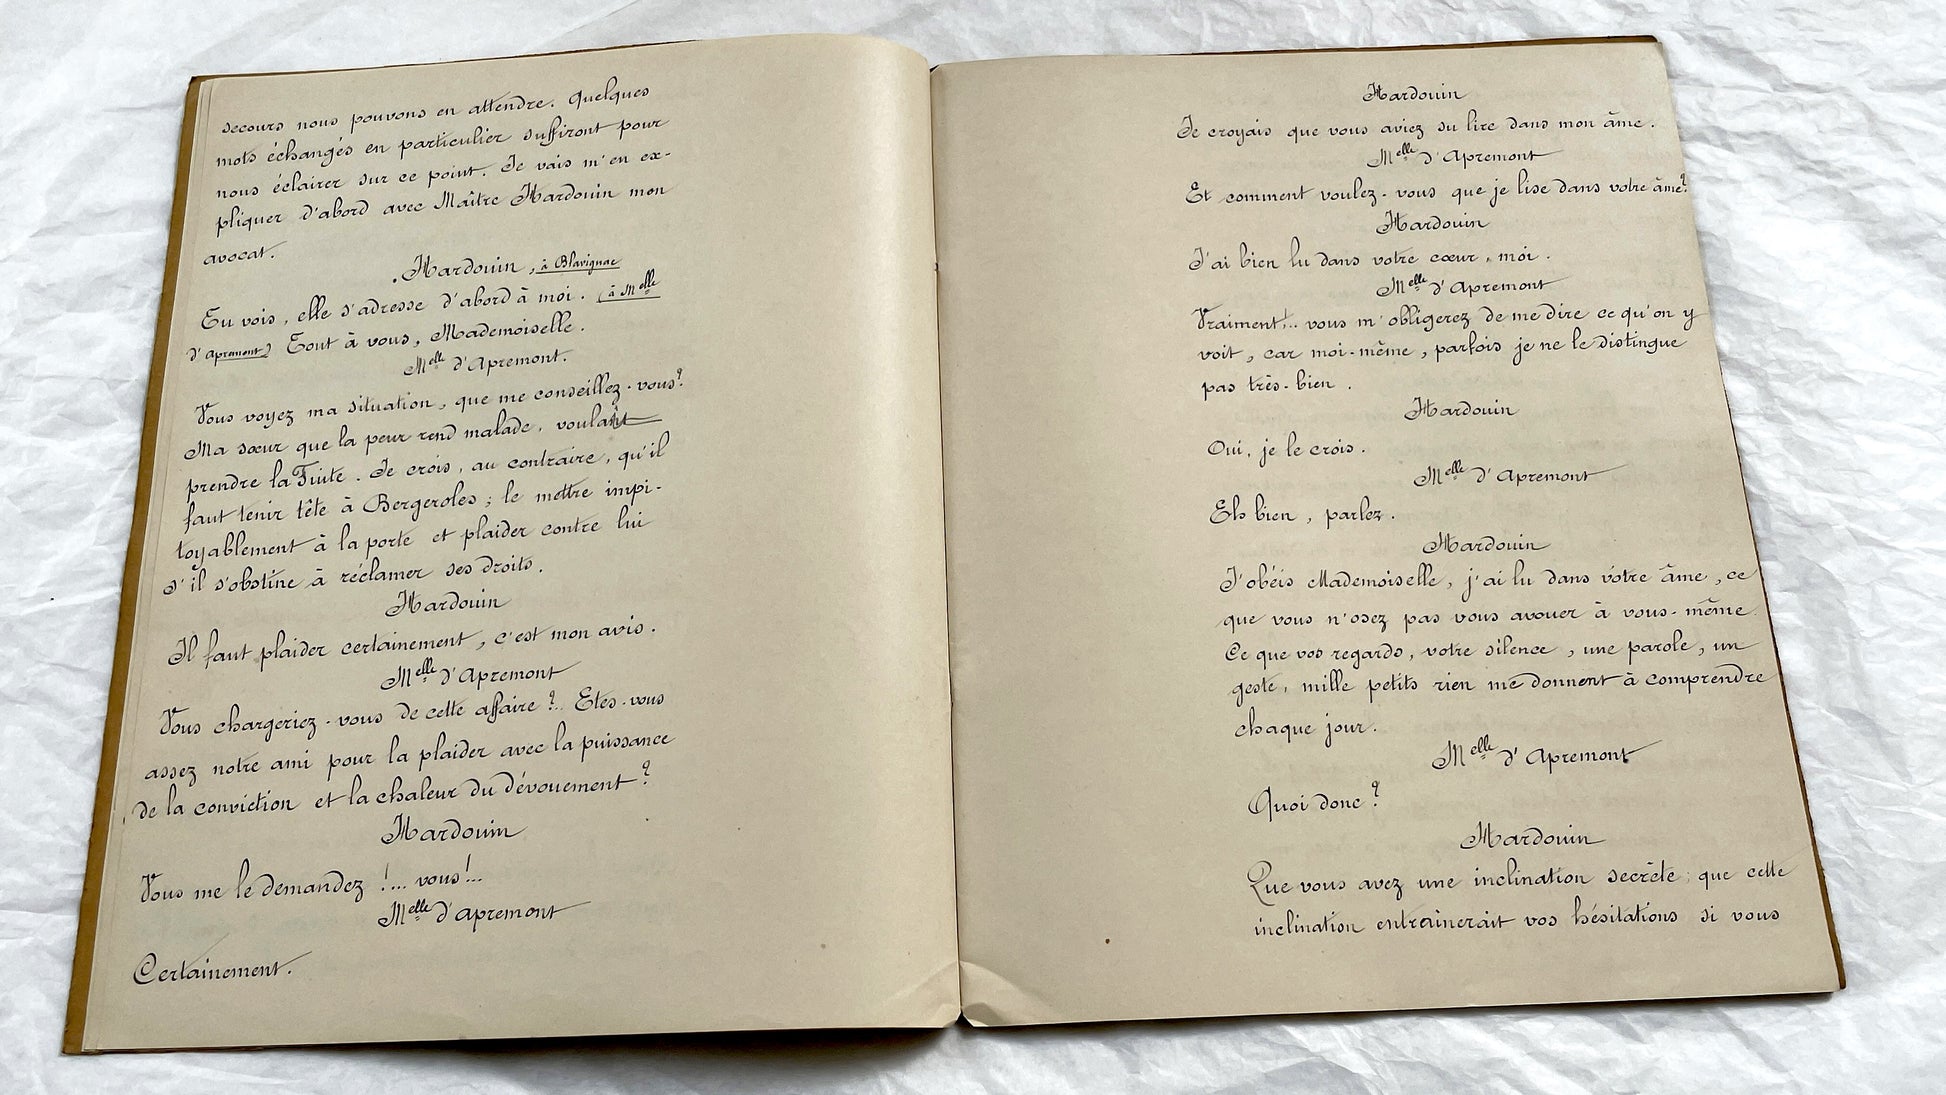 secours nous pouvons en attendre. Quelques
mots échangés en particulier suffiront pour
nous éclairer sur ce point. Je vais m'en ex-
pliquer d'abord avec Maître Hardouin mon
avocat.
Hardouin, à Blavignac
Tu vois, elle s'adresse d'abord à moi. (à Melle
d'Apremont) Tout à vous, Mademoiselle.
Melle d'Apremont.
Vous voyez ma situation, que me conseillez-vous?
Ma sœur que la peur rend malade, voulait
prendre la Fuite. Je crois, au contraire, qu'il
faut tenir tête à Bergeroles; le mettre impi-
toyablement à la porte et plaider contre lui
s'il s'obstine à réclamer ses droits.
Hardouin
Il faut plaider certainement, c'est mon avis.
Melle d'Apremont
Vous chargeriez-vous de cette affaire?.. Etes-vous
assez notre ami pour la plaider avec la puissance
de la conviction et la chaleur du dévouement?
Hardouin
Vous me le demandez!... vous!...
Melle d'Apremont
Certainement.
Hardouin
Je croyais que vous aviez su lire dans mon âme.
Melle d'Apremont
Et comment voulez-vous que je lise dans votre âme?
Hardouin
J'ai bien lu dans votre cœur, moi.
Melle d'Apremont
Vraiment!.. vous m'obligerez de me dire ce qu'on y
voit, car moi-même, parfois je ne le distingue
pas très-bien.
Hardouin
Oui, je le crois.
Melle d'Apremont
Eh bien, parlez.
Hardouin
J'obéis Mademoiselle, j'ai lu dans votre âme, ce
que vous n'osez pas vous avouer à vous-même
Ce que vos regards, votre silence, une parole, un
geste, mille petits rien me donnent à comprendre
chaque jour.
Melle d'Apremont
Quoi donc?
Hardouin
Que vous avez une inclination secrète; que cette
inclination entraînerait vos hésitations si vous